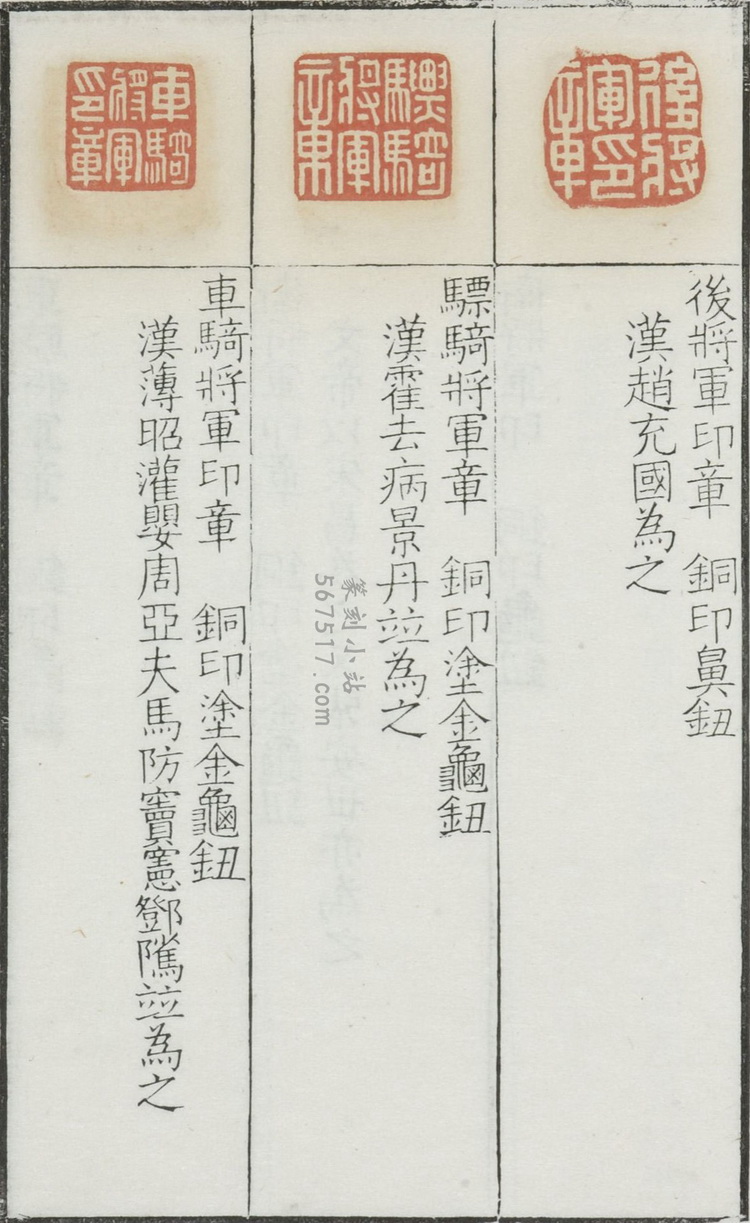 後將軍印章
後將軍印章　銅印鼻鈕
漢趙充國為之
驃騎將軍章
驃騎將軍章　銅印塗金龜鈕
漢霍去病景丹竝為之
車騎將軍印章
車騎將軍印章　銅印塗金龜鈕
漢薄昭灌嬰周亞夫馬防竇憲鄧隲竝為之
篆刻小站
567517.com